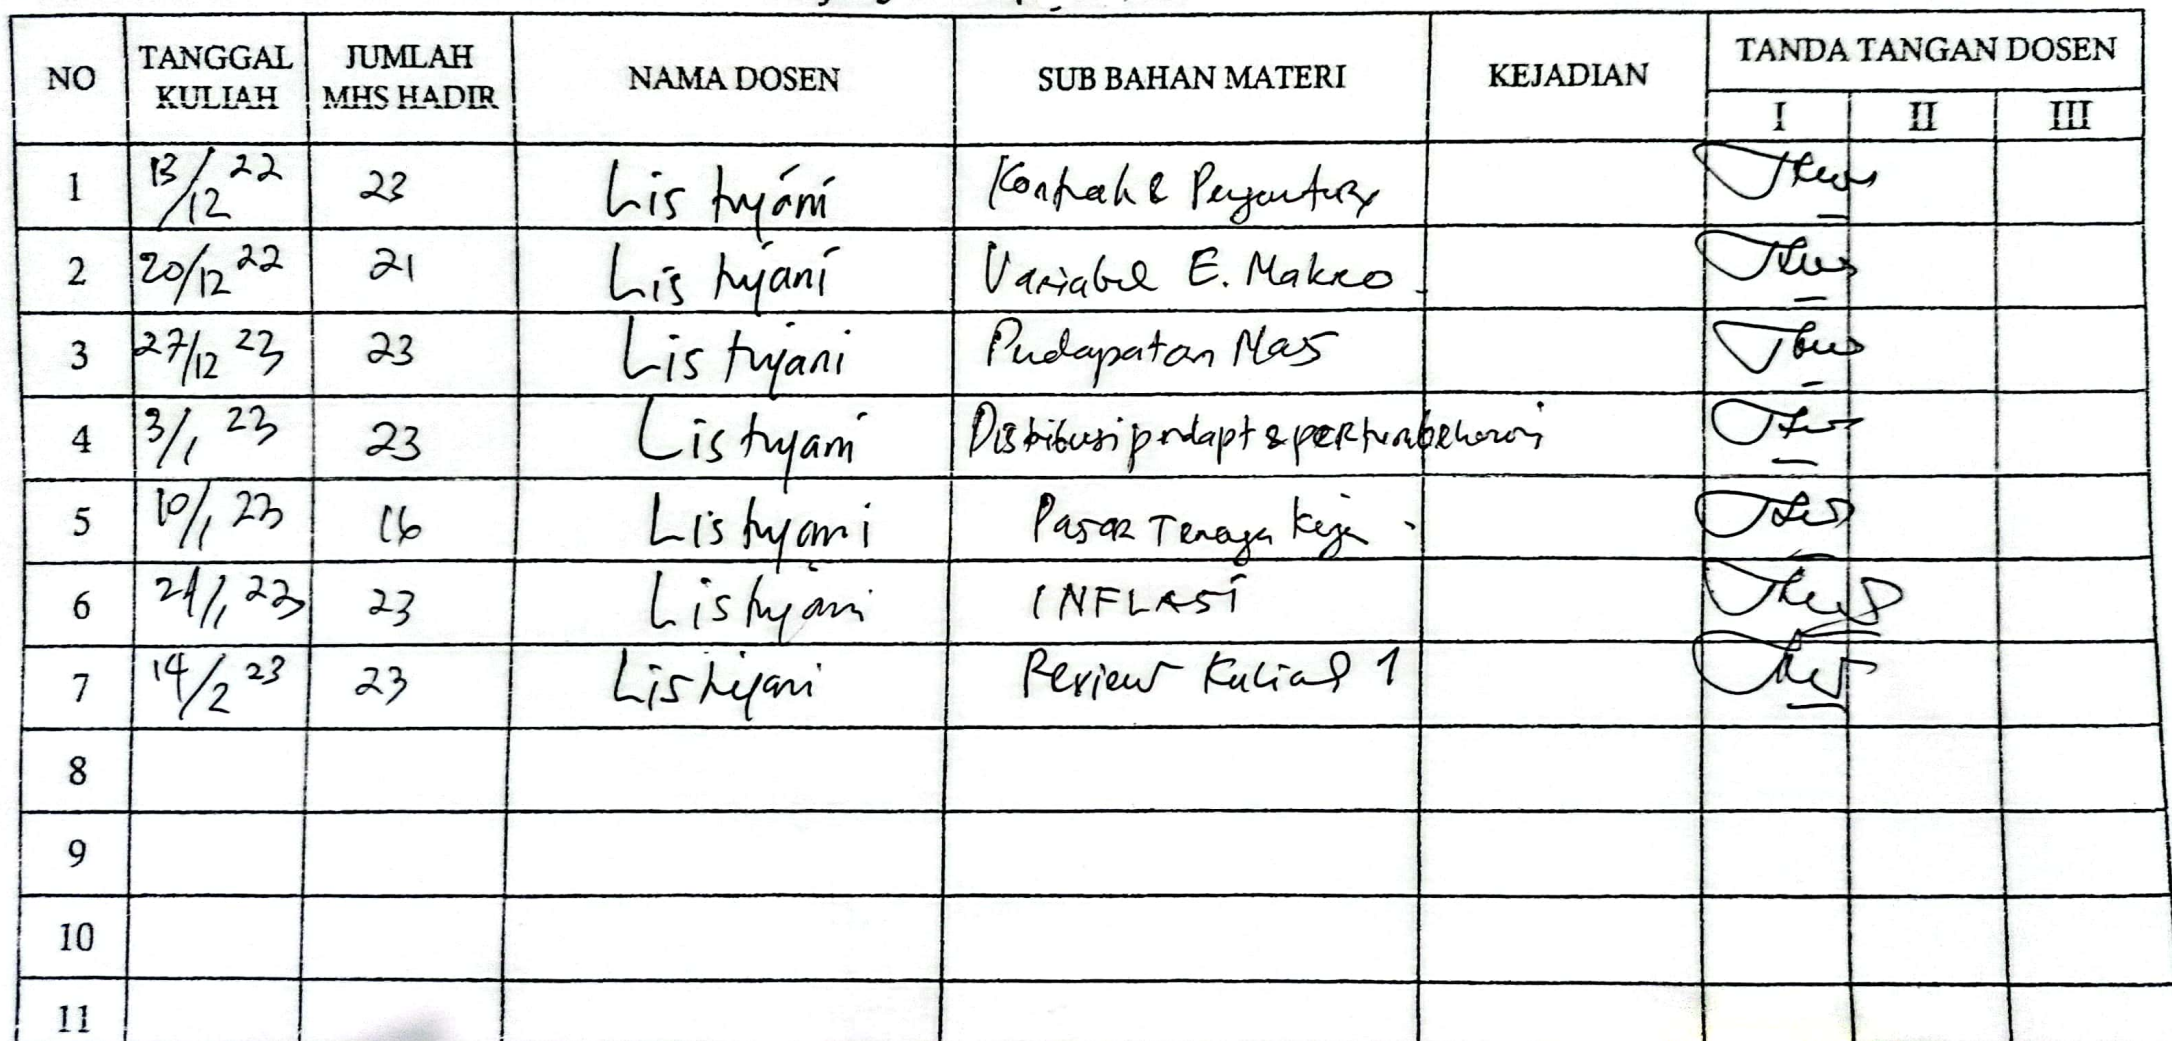 NO TANGGAL KULIAH JUMLAH MHS HADIR NAMA DOSEN SUB BAHAN MATERI KEJADIAN TANDA TANGAN DOSEN
I II III
1 13/12 22 23 Listiyani Kontrak & Pengantar
2 20/12 22 21 Listiyani Variabel E. Makro
3 27/12 23 23 Listiyani Pendapatan Nas
4 3/1 23 23 Listiyani Distribusi pendapt &
5 10/1 23 16 Listiyani Pasar Tenaga Kerja
6 24/1 23 23 Listiyani INFLASI
7 14/2 23 23 Listiyani Review Kuliah 1
8
9
10
11